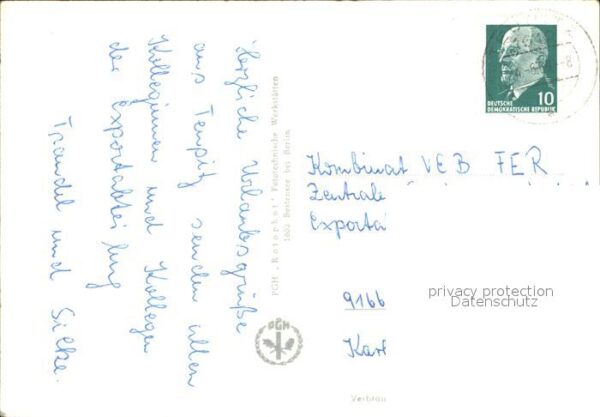 Herzliche Urlaubsgrüße
aus Teupitz senden allen
Kolleginnen und Kollegen
der Exportabteilung
Traudel und Silke.
PGH „Rotophot“ Fototechnische Werkstätten
1602 Bestensee bei Berlin
PGH
DEUTSCHE
DEMOKRATISCHE REPUBLIK
10
Kombinat VEB FER
Zentrale
Exporta
9166
Karl
privacy protection
Datenschutz